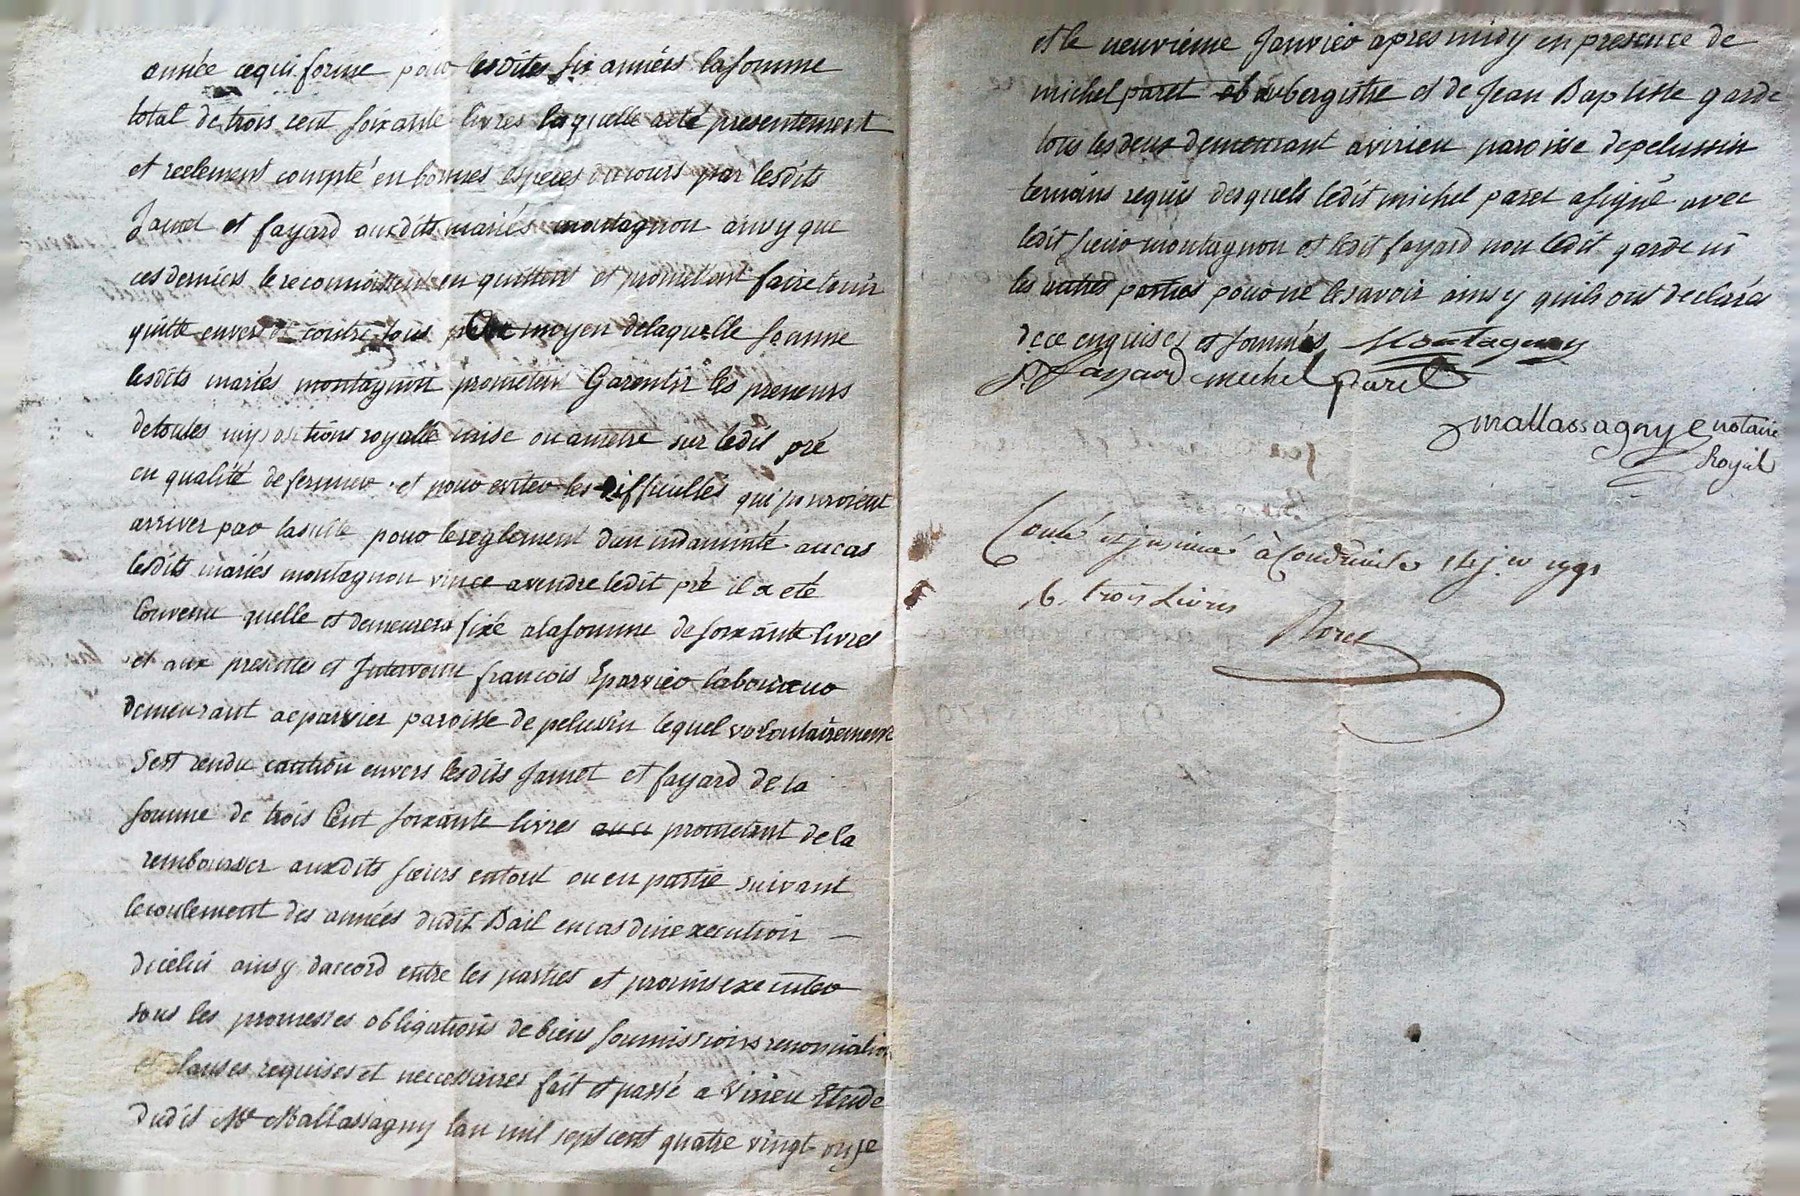 année ce qui forme pour lesdites six années la somme
total de trois cent soixante livres laquelle a eté presentement
et reelement compté en bonnes espèces du cours par lesdits
Jamet et fayard auxdits mariés montagnon ainsy que
ces derniers le reconnoissent en quittent et promettent faire tenir
quitte envers et contre tous moyen de laquelle somme
lesdits mariés montagnon prometent Garentir les preneurs
de toutes impositions royalle mise ou a metre sur ledit pré
en qualité de fermier et pour eviter les Difficultés qui pouroient
arriver par la suitte pour le reglement d'un indamnité au cas
lesdits mariés montagnon vince a vendre ledit pré il a eté
convenu quelle et demeurera fixé a la somme de soixante livres
et aux presentes et Intervenu francois Eparvier laboureur
demeurant a eparvier paroisse de pelussin lequel volontairement
sest rendu caution envers lesdits Jamet et fayard de la
somme de trois Cent soixante livres promettant de la
rembourser auxdits sieurs en tout ou en partie suivant
lecoulement des années dudit Bail en cas dinexecution
dicelui ainsy daccord entre les parties et promis executer
sous les promesses obligations de biens soumissions renonciation
et clauses requises et necessaires fait et passé a Virieu Etude
dudit Me Mallassagny lan mil sept cent quatre vingt onze
et le neuvieme Janvier apres midy en presence de
michel paret aubergiste et de Jean Baptiste garde
tous les deux demeurant a virieu paroisse de pelussin
temoins requis desquels ledit michel paret a signé avec
ledit sieur montagnon et ledit fayard non ledit garde ni
les autres parties pour ne le savoir ainsy quils ont declarés
de ce enquises et sommés Montagnon
J fayard michel paret
Mallassagny notaire
Royal
Conlé et insinué à Condrieu le 14 j.er 1791
R. trois Livres